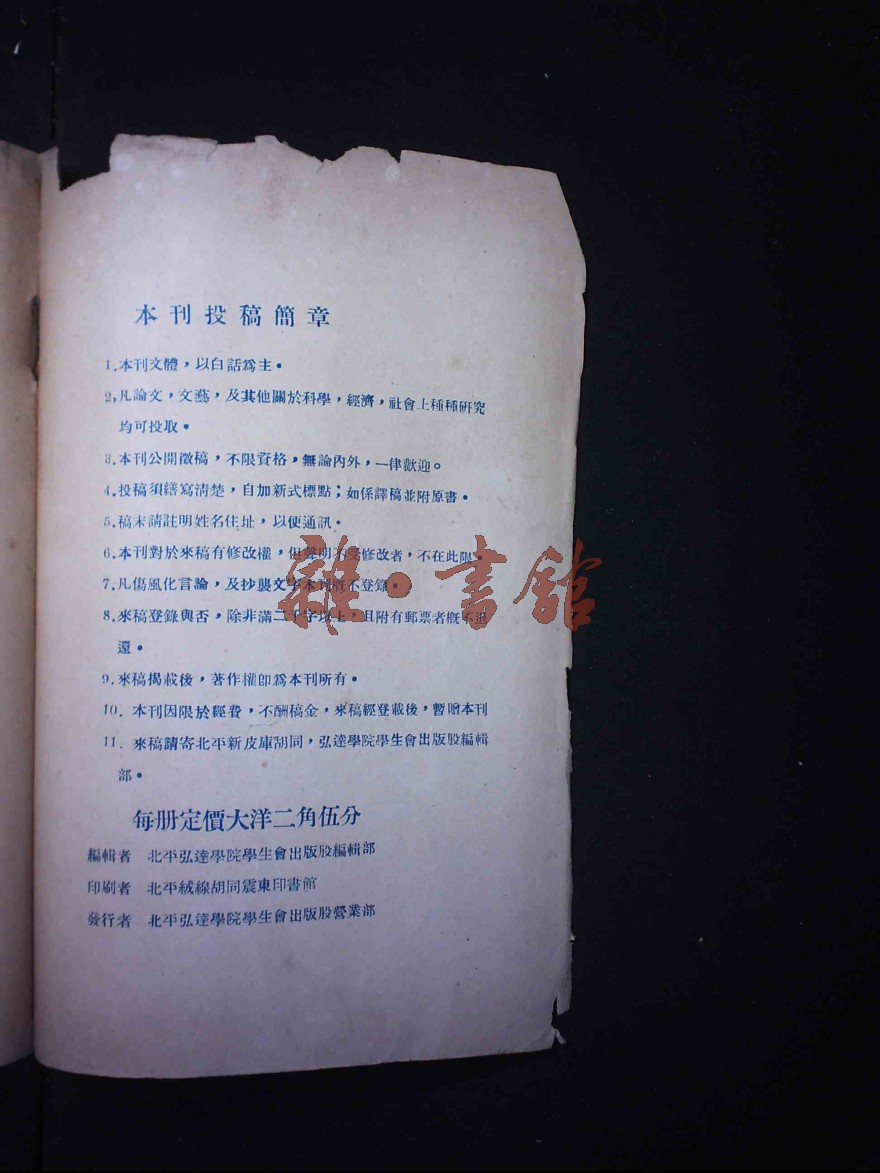 本刊投稿簡章
1.本刊文體，以白話爲主。
2.凡論文，文藝，及其他關於科學，經濟，社會上種種研究
均可投取。
3.本刊公開徵稿，不限資格，無論內外，一律歡迎。
4.投稿須繕寫清楚，自加新式標點；如係譯稿並附原書。
5.稿末請註明姓名住址，以便通訊。
6.本刊對於來稿有修改權，但聲明不受修改者，不在此限。
7.凡傷風化言論，及抄襲文字本刊概不登錄。
8.來稿登錄與否，除非滿二千字以上，且附有郵票者概不退
還。
9.來稿揭載後，著作權卽爲本刊所有。
10. 本刊因限於經費，不酬稿金，來稿經登載後，暫贈本刊
11. 來稿請寄北平新皮庫胡同，弘達學院學生會出版股編輯
部。
每册定價大洋二角伍分
編輯者 北平弘達學院學生會出版股編輯部
印刷者 北平絨線胡同震東印書館
發行者 北平弘達學院學生會出版股營業部
雜·書館